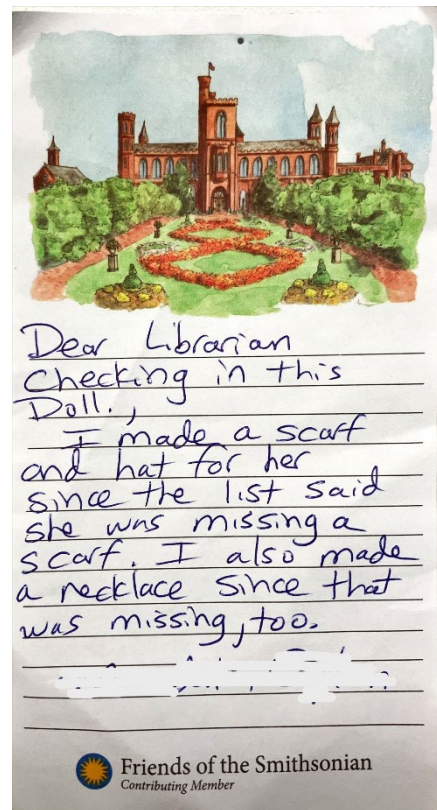 Dear Librarian
Checking in this
Doll.,
I made a scarf
and hat for her
since the list said
she was missing a
scarf. I also made
a necklace since that
was missing, too.
Friends of the Smithsonian
Contributing Member